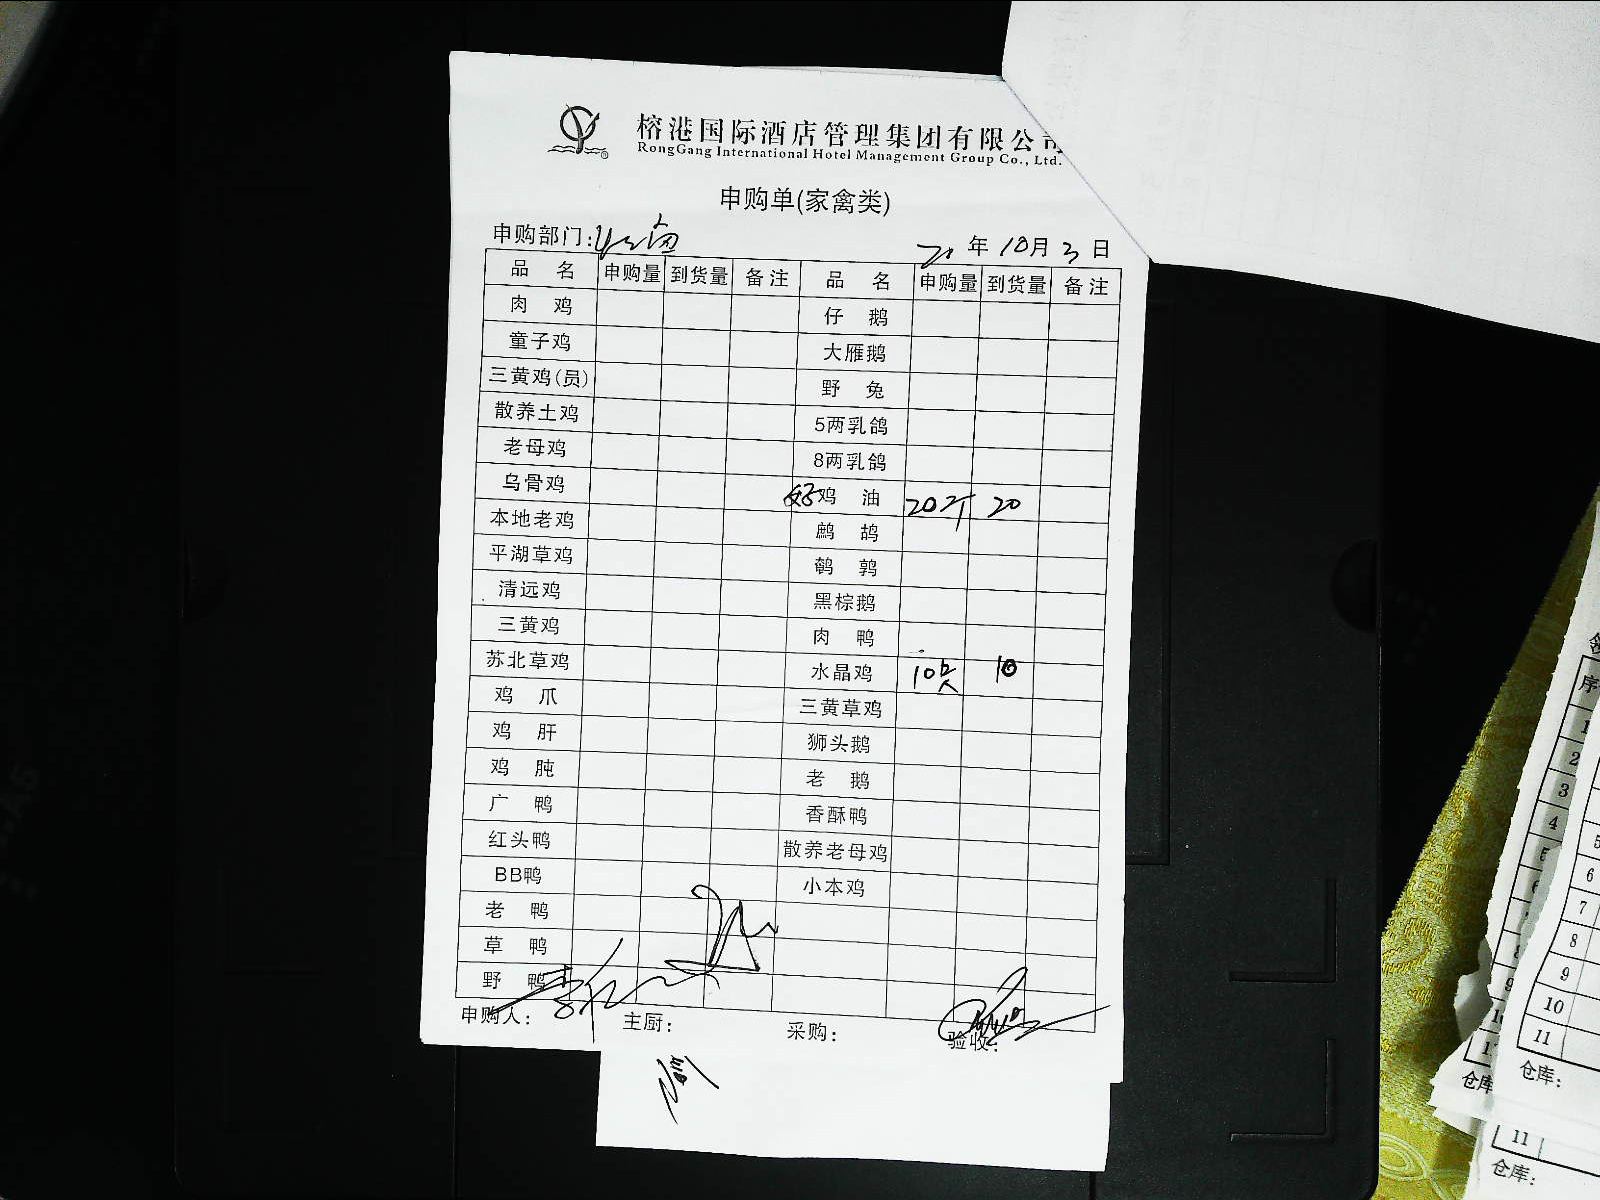 榕港国际酒店管理集团有限公司
RongGang International Hotel Management Group Co., Ltd.
申购单(家禽类)
申购部门:
20 年 10 月 3 日
品 名 申购量 到货量 备注 品 名 申购量 到货量 备注
肉 鸡 仔 鹅
童子鸡 大雁鹅
三黄鸡(员) 野 兔
散养土鸡 5两乳鸽
老母鸡 8两乳鸽
乌骨鸡 好鸡 油 20斤 20
本地老鸡 鹧 鸪
平湖草鸡 鹌 鹑
清远鸡 黑棕鹅
三黄鸡 肉 鸭
苏北草鸡 水晶鸡 10只 10
鸡 爪 三黄草鸡
鸡 肝 狮头鹅
鸡 肫 老 鹅
广 鸭 香酥鸭
红头鸭 散养老母鸡
BB鸭 小本鸡
老 鸭
草 鸭
野 鸭
申购人: 主厨: 采购: 验收:
序
1
2
3
4
5
6
7
8
9
10
11
仓库:
仓库:
11
仓库: